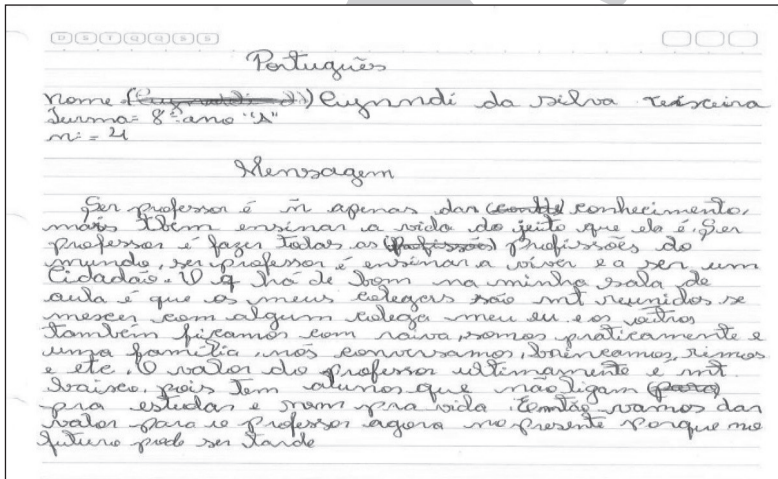 D S T Q Q S S
Português
nome Eugnndi da silva teixceira
Turma= 8º ano "A"
nº = 21
Mensagem
Ser professor é ñ apenas dar conhecimento,
mais tbem ensinar a vida do jeito que ela é, Ser
professor é fazer todas as profissões do
mundo, ser professor é ensinar a viver e a ser, um
Cidadão. O q há de bom na minha sala de
aula é que os meus colegars são mt reunidos se
mescer com algum colega meu eu e os outros
também ficamos com raiva, somos praticamente e
uma família, nós conversamos, brincamos, rimos
e etc. O valor do professor ultimamente é mt
baixo, pois tem alunos que não ligam
pra estudar e nem pra vida. Então vamos dar
valor para o professor agora no presente porque no
futuro pode ser tarde